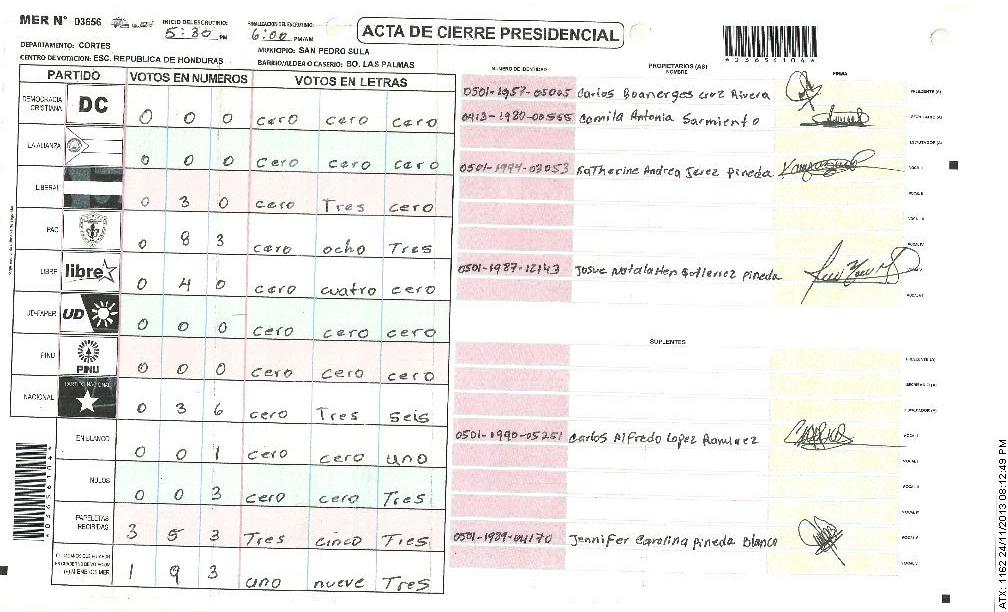 MER N° 03656
INICIO DEL ESCRUTINIO:
5:30 PM
FINALIZACION DEL ESCRUTINIO:
6:00 PM/AM
ACTA DE CIERRE PRESIDENCIAL
DEPARTAMENTO: CORTES
MUNICIPIO: SAN PEDRO SULA
CENTRO DE VOTACION: ESC. REPUBLICA DE HONDURAS
BARRIO/ALDEA O CASERIO: BO. LAS PALMAS
PARTIDO VOTOS EN NUMEROS VOTOS EN LETRAS
DEMOCRACIA CRISTIANA DC 0 0 0 cero cero cero
LA ALIANZA 0 0 0 cero cero cero
LIBERAL 0 3 0 cero Tres cero
PAC 0 8 3 cero ocho Tres
LIBRE libre 0 4 0 cero cuatro cero
UD-FAPER UD 0 0 0 cero cero cero
PINU PINU 0 0 0 cero cero cero
NACIONAL PARTIDO NACIONAL 0 3 6 cero Tres seis
EN BLANCO 0 0 1 cero cero uno
NULOS 0 0 3 cero cero Tres
PAPELETAS RECIBIDAS 3 5 3 Tres cinco Tres
1 9 3 uno nueve Tres
NUMERO DE IDENTIDAD
PROPIETARIOS (AS)
NOMBRE
FIRMA
0501-1957-05005 Carlos Boanerges Cruz Rivera PRESIDENTE (A)
0413-1980-00555 Camila Antonia Sarmiento SECRETARIO (A)
ESCRUTADOR (A)
0501-1994-03053 Katherine Andrea Jerez Pineda VOCAL I
VOCAL II
VOCAL III
VOCAL IV
0501-1987-12143 Josue Natalahen Gutierrez Pineda VOCAL V
VOCAL VI
SUPLENTES
PRESIDENTE (A)
SECRETARIO (A)
ESCRUTADOR (A)
0501-1990-05251 Carlos Alfredo Lopez Ramirez VOCAL I
VOCAL II
VOCAL III
VOCAL IV
0501-1989-04170 Jennifer Carolina Pineda Blanco VOCAL V
VOCAL VI
ATX: 1162 24/11/2013 08:12:49 PM